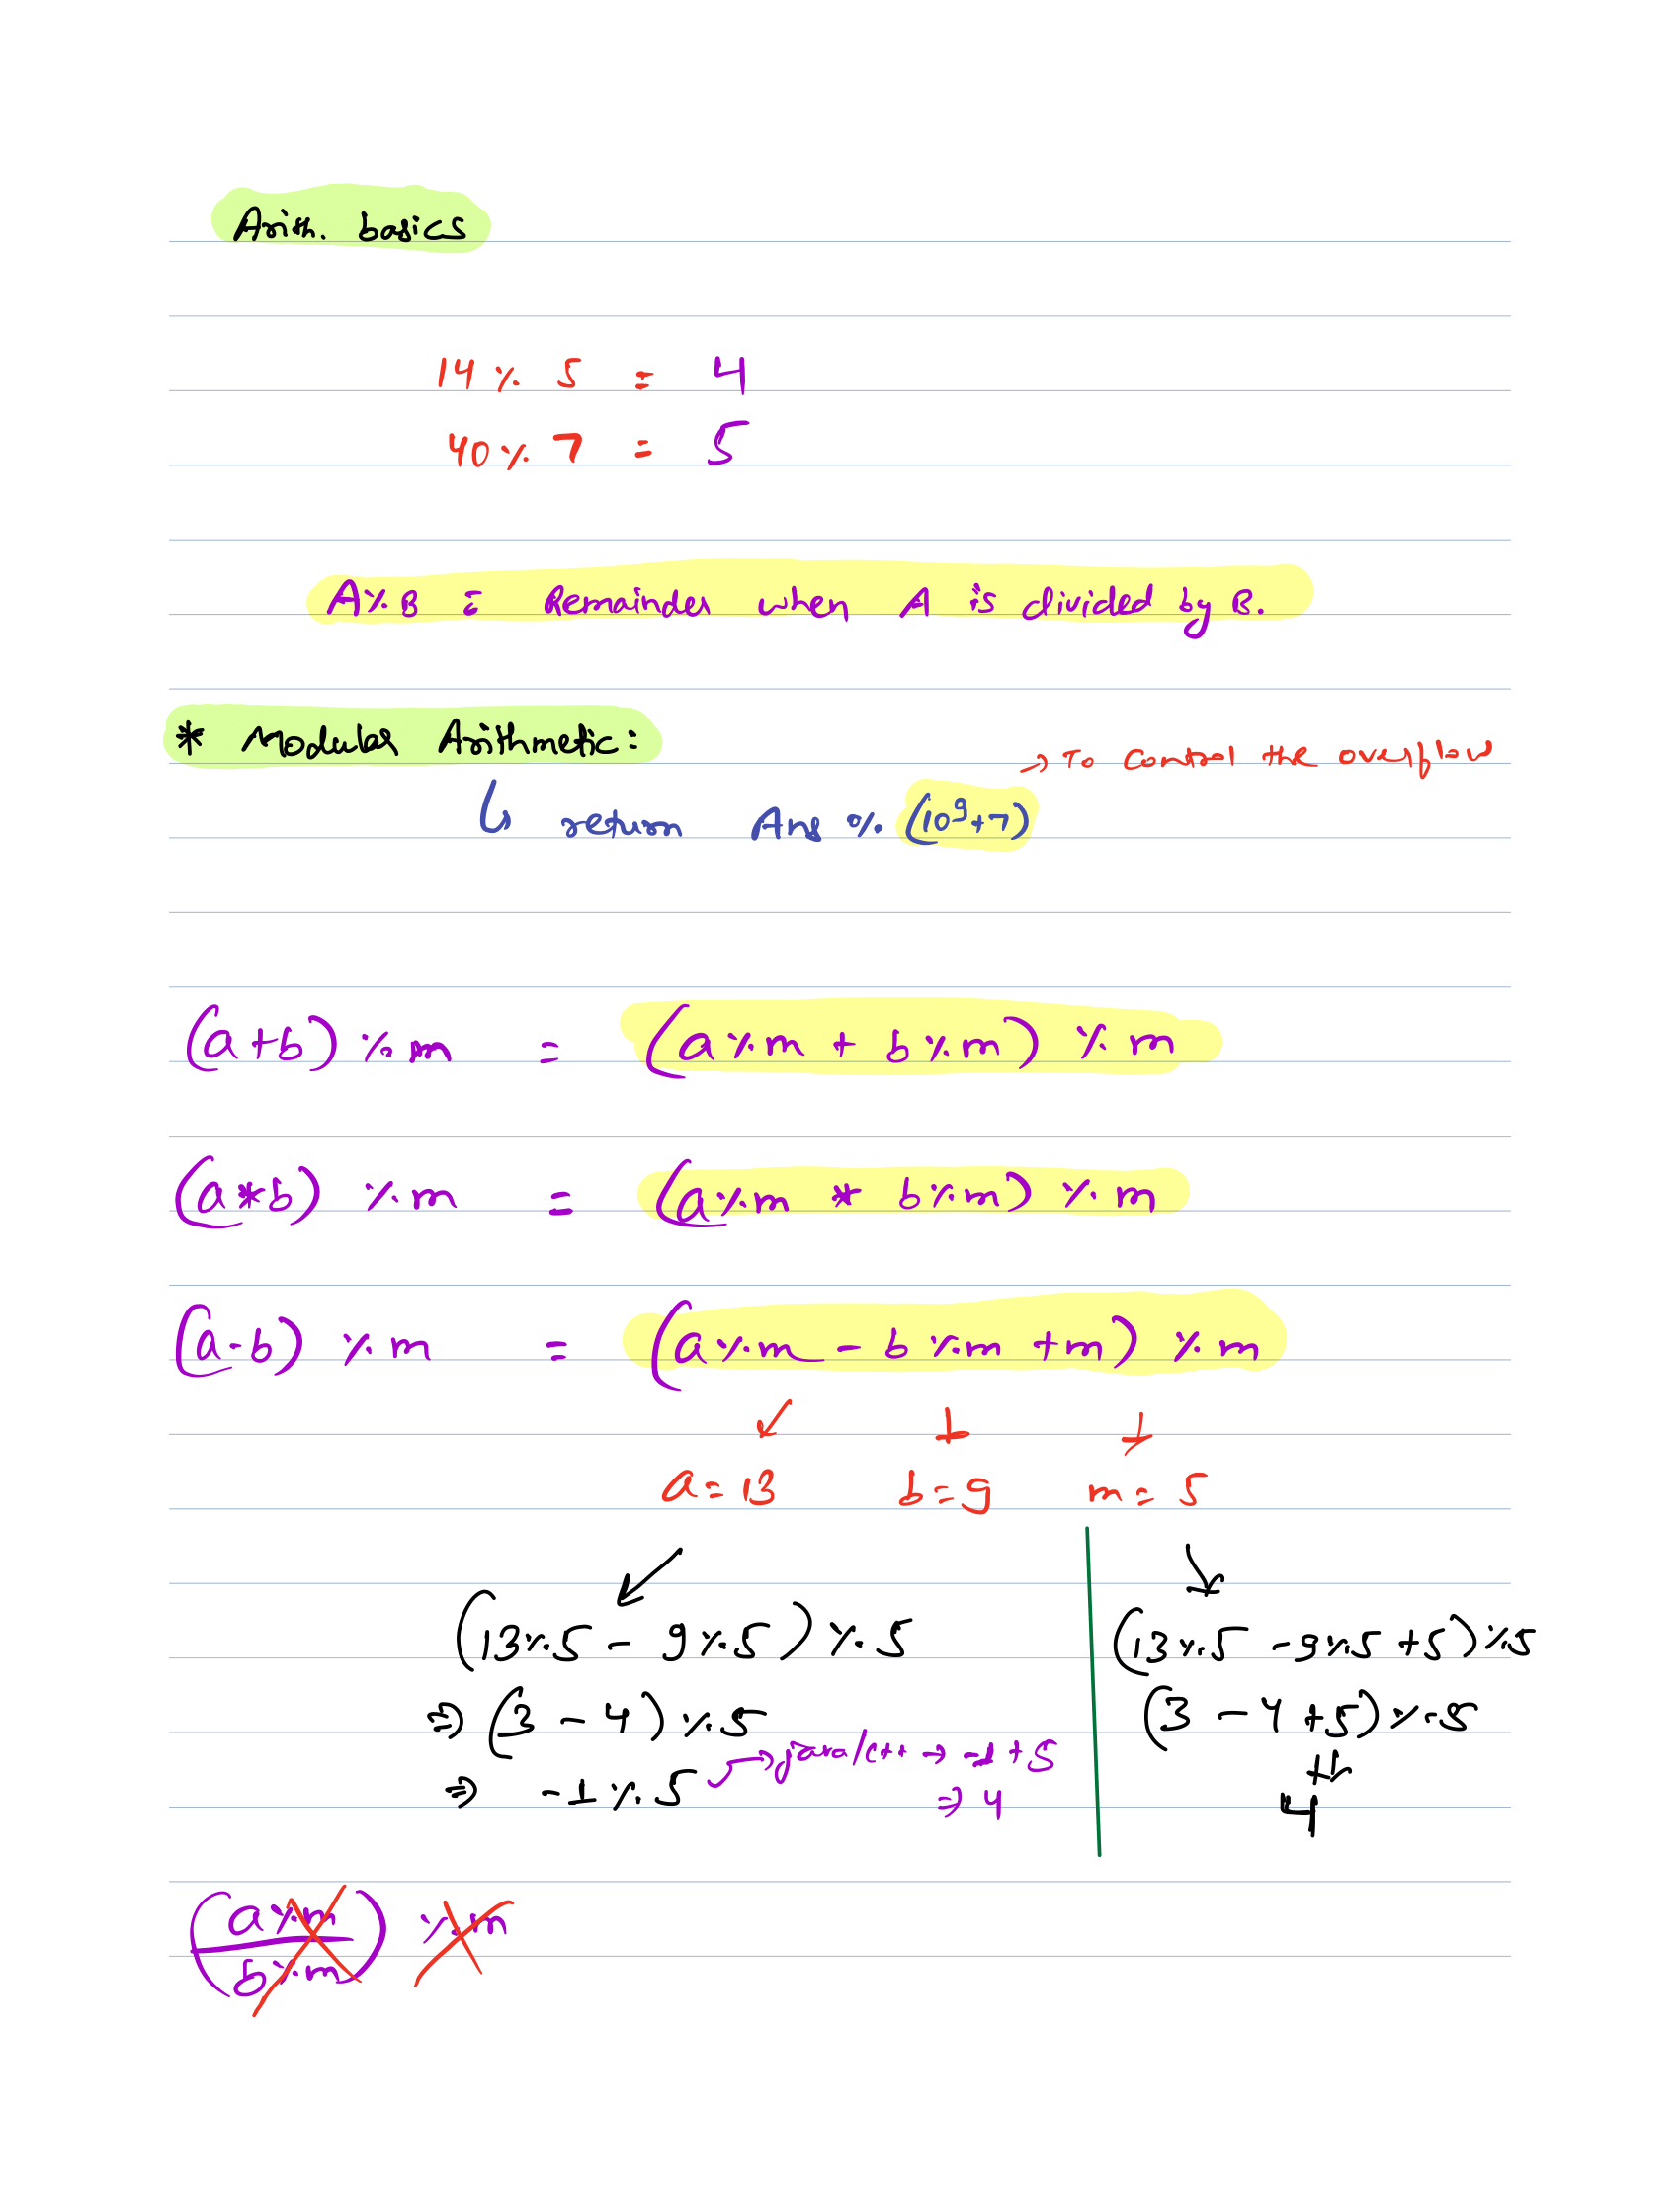 Arith. basics
14 % 5 = 4
40 % 7 = 5
A % B = Remainder when A is divided by B.
* Modular Arithmetic:
→ To control the overflow
↳ return Ans % (10⁹+7)
(a+b) % m = (a % m + b % m) % m
(a*b) % m = (a % m * b % m) % m
(a-b) % m = (a % m - b % m + m) % m
a = 13 b = 9 m = 5
(13 % 5 - 9 % 5) % 5 (13 % 5 - 9 % 5 + 5) % 5
⇒ (3 - 4) % 5 (3 - 4 + 5) % 5
⇒ -1 % 5 → java/c++ → -1 + 5
⇒ 4 4
(a % m / b % m) % m